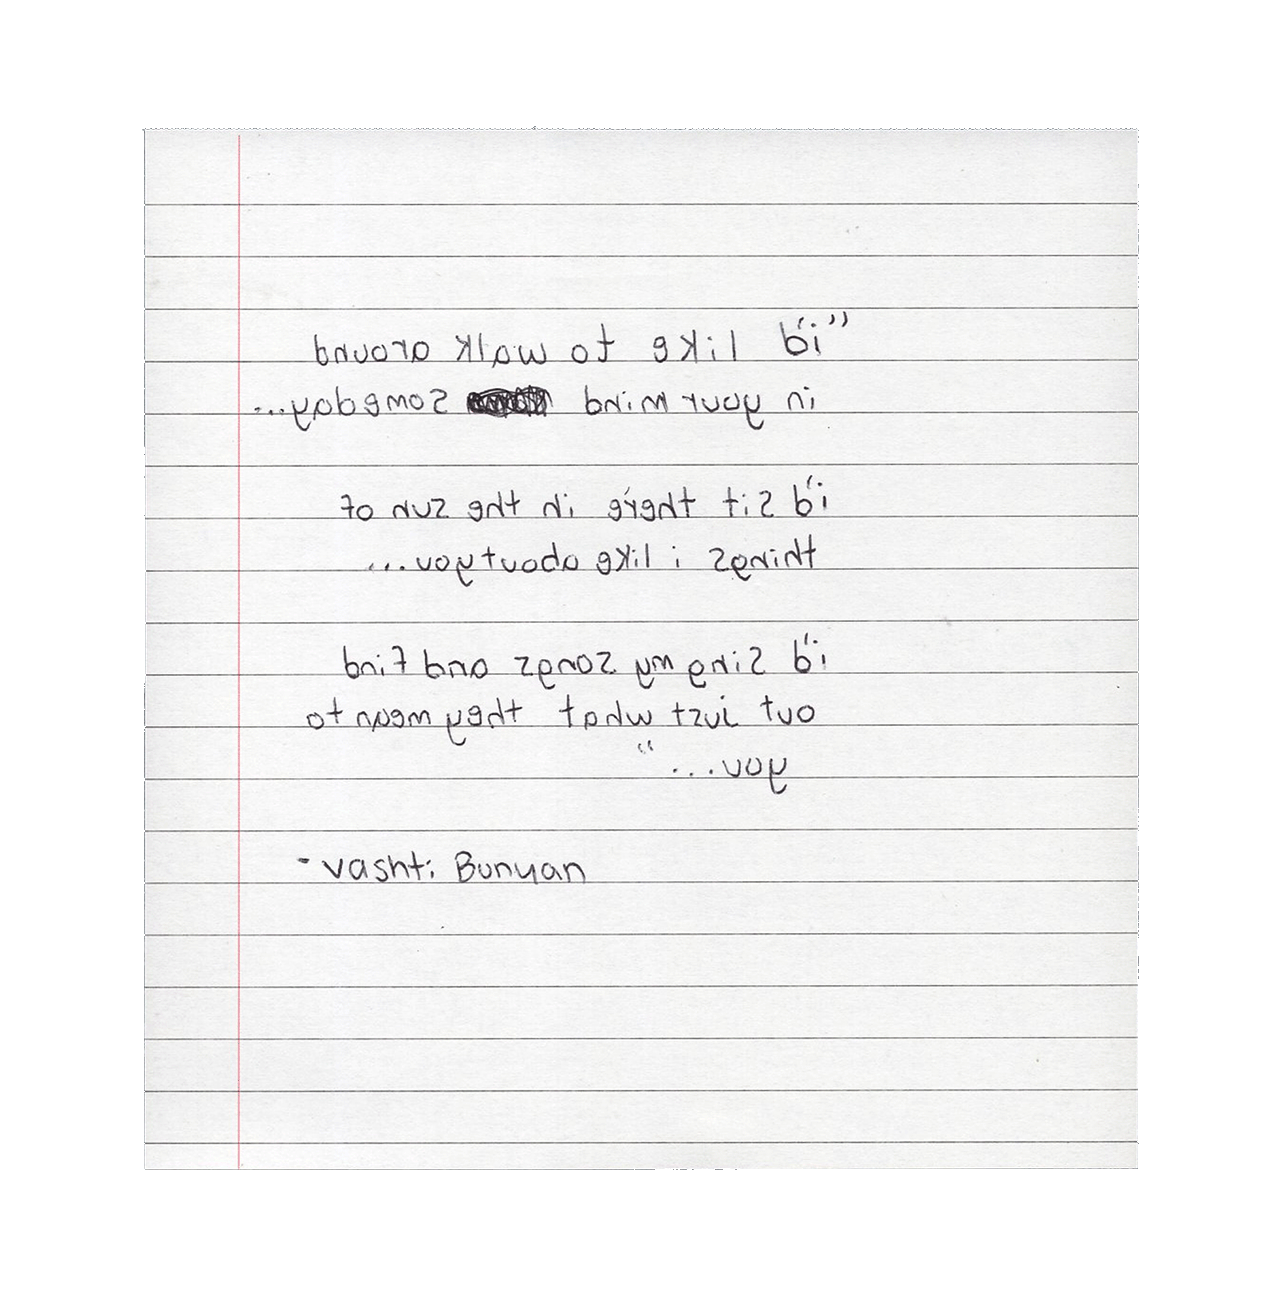 "i'd like to walk around
in your mind someday...
i'd sit there in the sun of
things i like about you...
i'd sing my songs and find
out just what they mean to
you..."
- vashti Bunyan